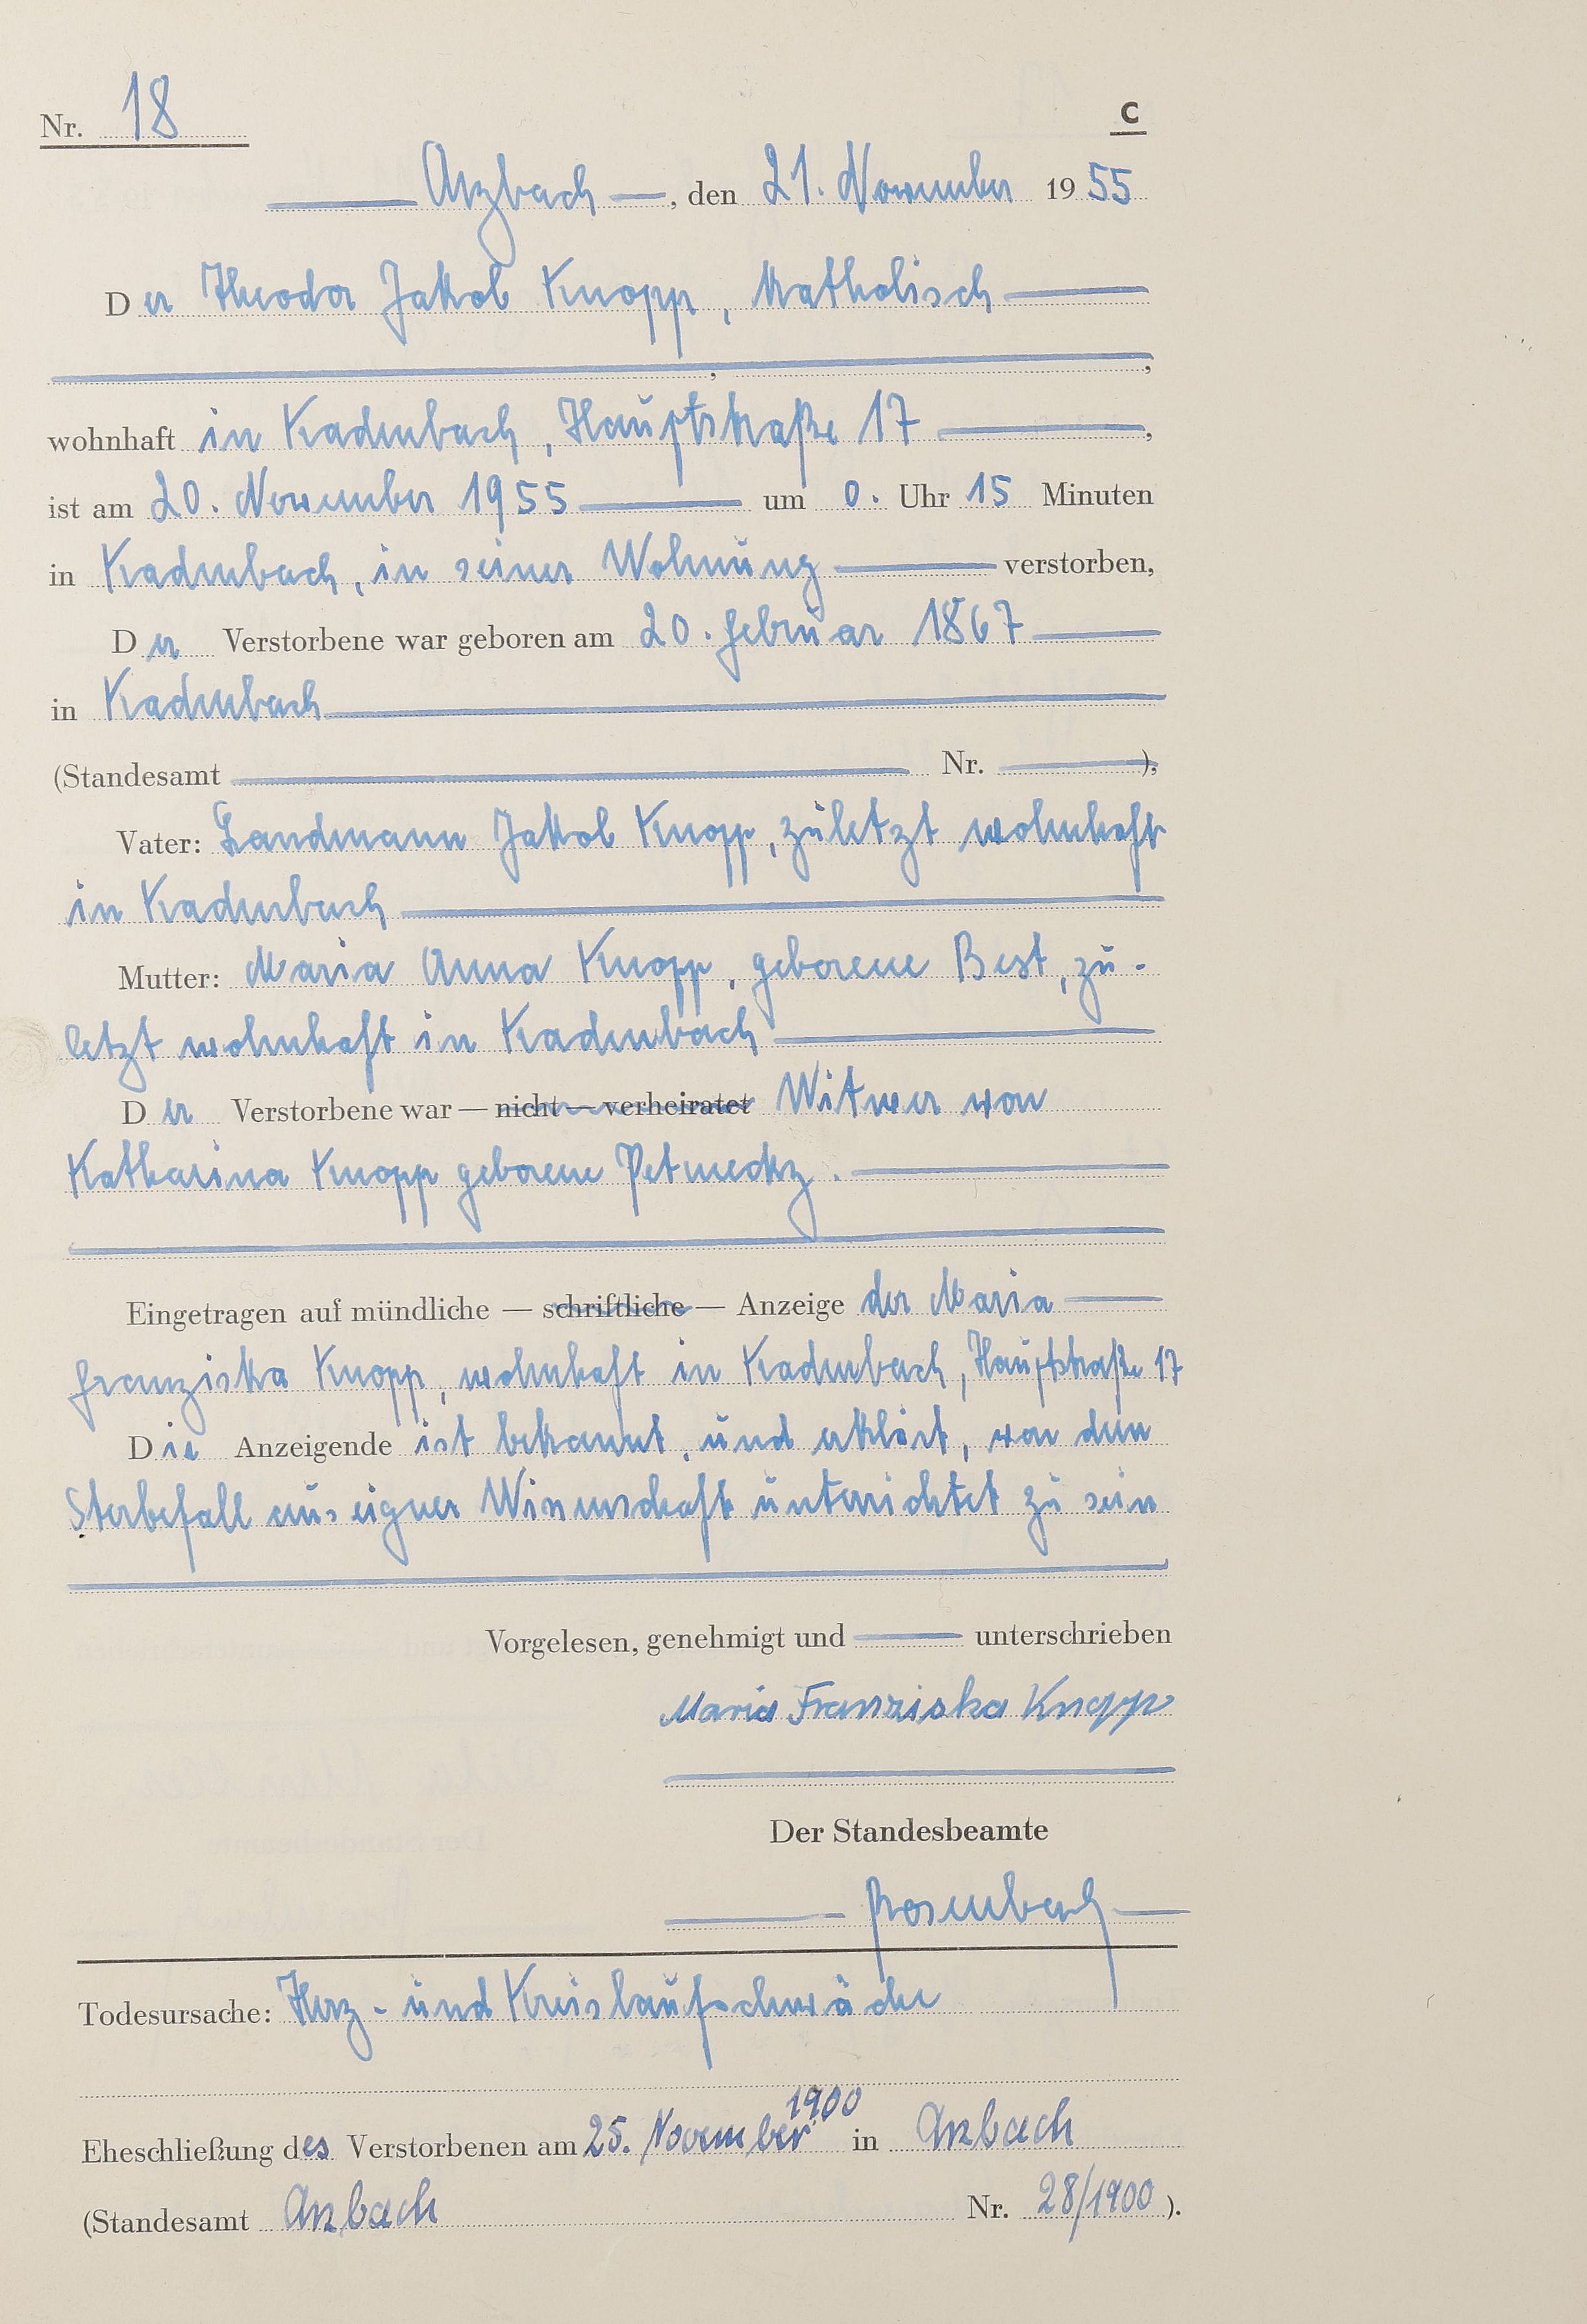 Nr. 18
C
Arzbach, den 21. November 1955
Der Theodor Jakob Knopp, katholisch
, ,
wohnhaft in Kadenbach, Hauptstraße 17,
ist am 20. November 1955 um 0. Uhr 15 Minuten
in Kadenbach, in seiner Wohnung verstorben,
Der Verstorbene war geboren am 20. Februar 1867
in Kadenbach
(Standesamt Nr. ),
Vater: Landmann Jakob Knopp, zuletzt wohnhaft
in Kadenbach
Mutter: Maria Anna Knopp, geborene Best, zu-
letzt wohnhaft in Kadenbach
Der Verstorbene war — nicht — verheiratet Witwer von
Katharina Knopp geborene Petmecky.
Eingetragen auf mündliche — schriftliche — Anzeige der Maria
Franziska Knopp, wohnhaft in Kadenbach, Hauptstraße 17
Die Anzeigende ist bekannt, und erklärt, von dem
Sterbefall aus eigner Wissenschaft unterrichtet zu sein
Vorgelesen, genehmigt und unterschrieben
Maria Franziska Knopp
Der Standesbeamte
Rosenbach
Todesursache: Herz- und Kreislaufschwäche
Eheschließung des Verstorbenen am 25. November 1900 in Arzbach
(Standesamt Arzbach Nr. 28/1900).